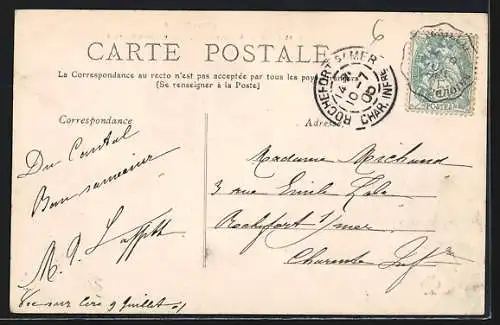 CARTE POSTALE
La Correspondance au recto n'est pas acceptée par tous les pays
(Se renseigner à la Poste)
ROCHEFORT S/MER
10-7
CHAR. INFRE
Correspondance
Adresse
Du Cantal
Bon souvenir
Madame Michaud
3 rue Emile Zola
Rochefort s/mer
Charente Infre
Vic sur Cère 9 Juillet
6